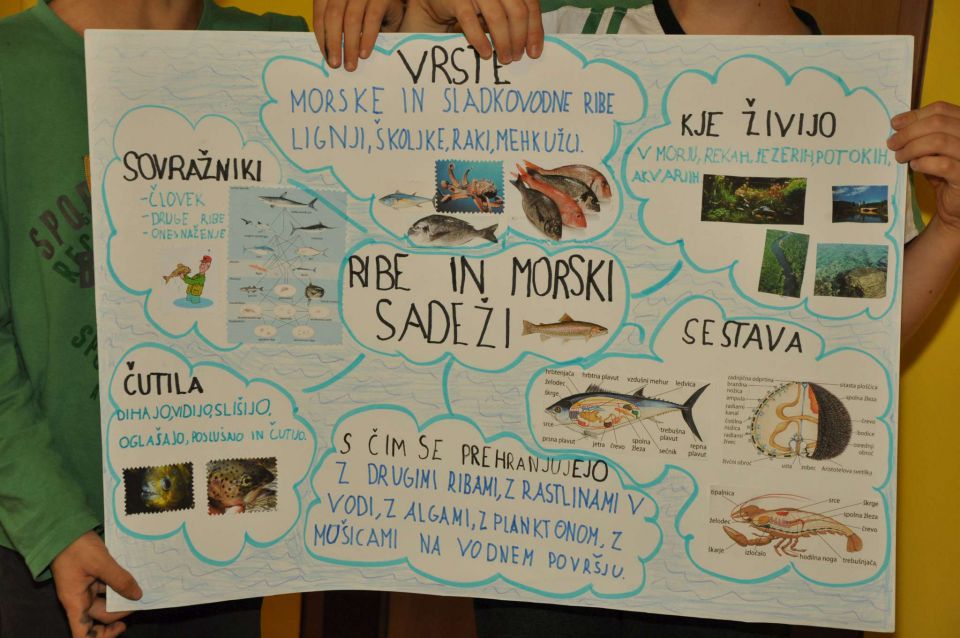 VRSTE
MORSKE IN SLADKOVODNE RIBE
LIGNJI, ŠKOLJKE, RAKI, MEHKUŽCI.
KJE ŽIVIJO
V MORJU, REKAH, JEZERIH, POTOKIH,
AKVARJIH
SOVRAŽNIKI
-ČLOVEK
-DRUGE RIBE
-ONESNAŽENJE
RIBE IN MORSKI
SADEŽI
SESTAVA
hrbtenjača hrbtna plavut vzdušni mehur ledvica
želodec
škrge
srce
prsna plavut jetra črevo spolna žleza sečnik trebušna plavut repna plavut
radnična odprtina
bradna
nožica
ampula
radiarni
kanal
čutilna
nožica
radiarni
živec
živčni obroč
usta
zobec
Aristotelova svetilka
sitasta ploščica
spolna žleza
črevo
bodice
osrednji
obroč
tipalnica
srce
škrge
spolna žleza
črevo
želodec
škarje
izločalo
hodilna noga
trebušnjača
ČUTILA
DIHAJO, VIDIJO, SLIŠIJO,
OGLAŠAJO, POSLUŠNO IN ČUTIJO.
S ČIM SE PREHRANJUJEJO
Z DRUGIMI RIBAMI, Z RASTLINAMI V
VODI, Z ALGAMI, Z PLANKTONOM, Z
MUŠICAMI NA VODNEM POVRŠJU.